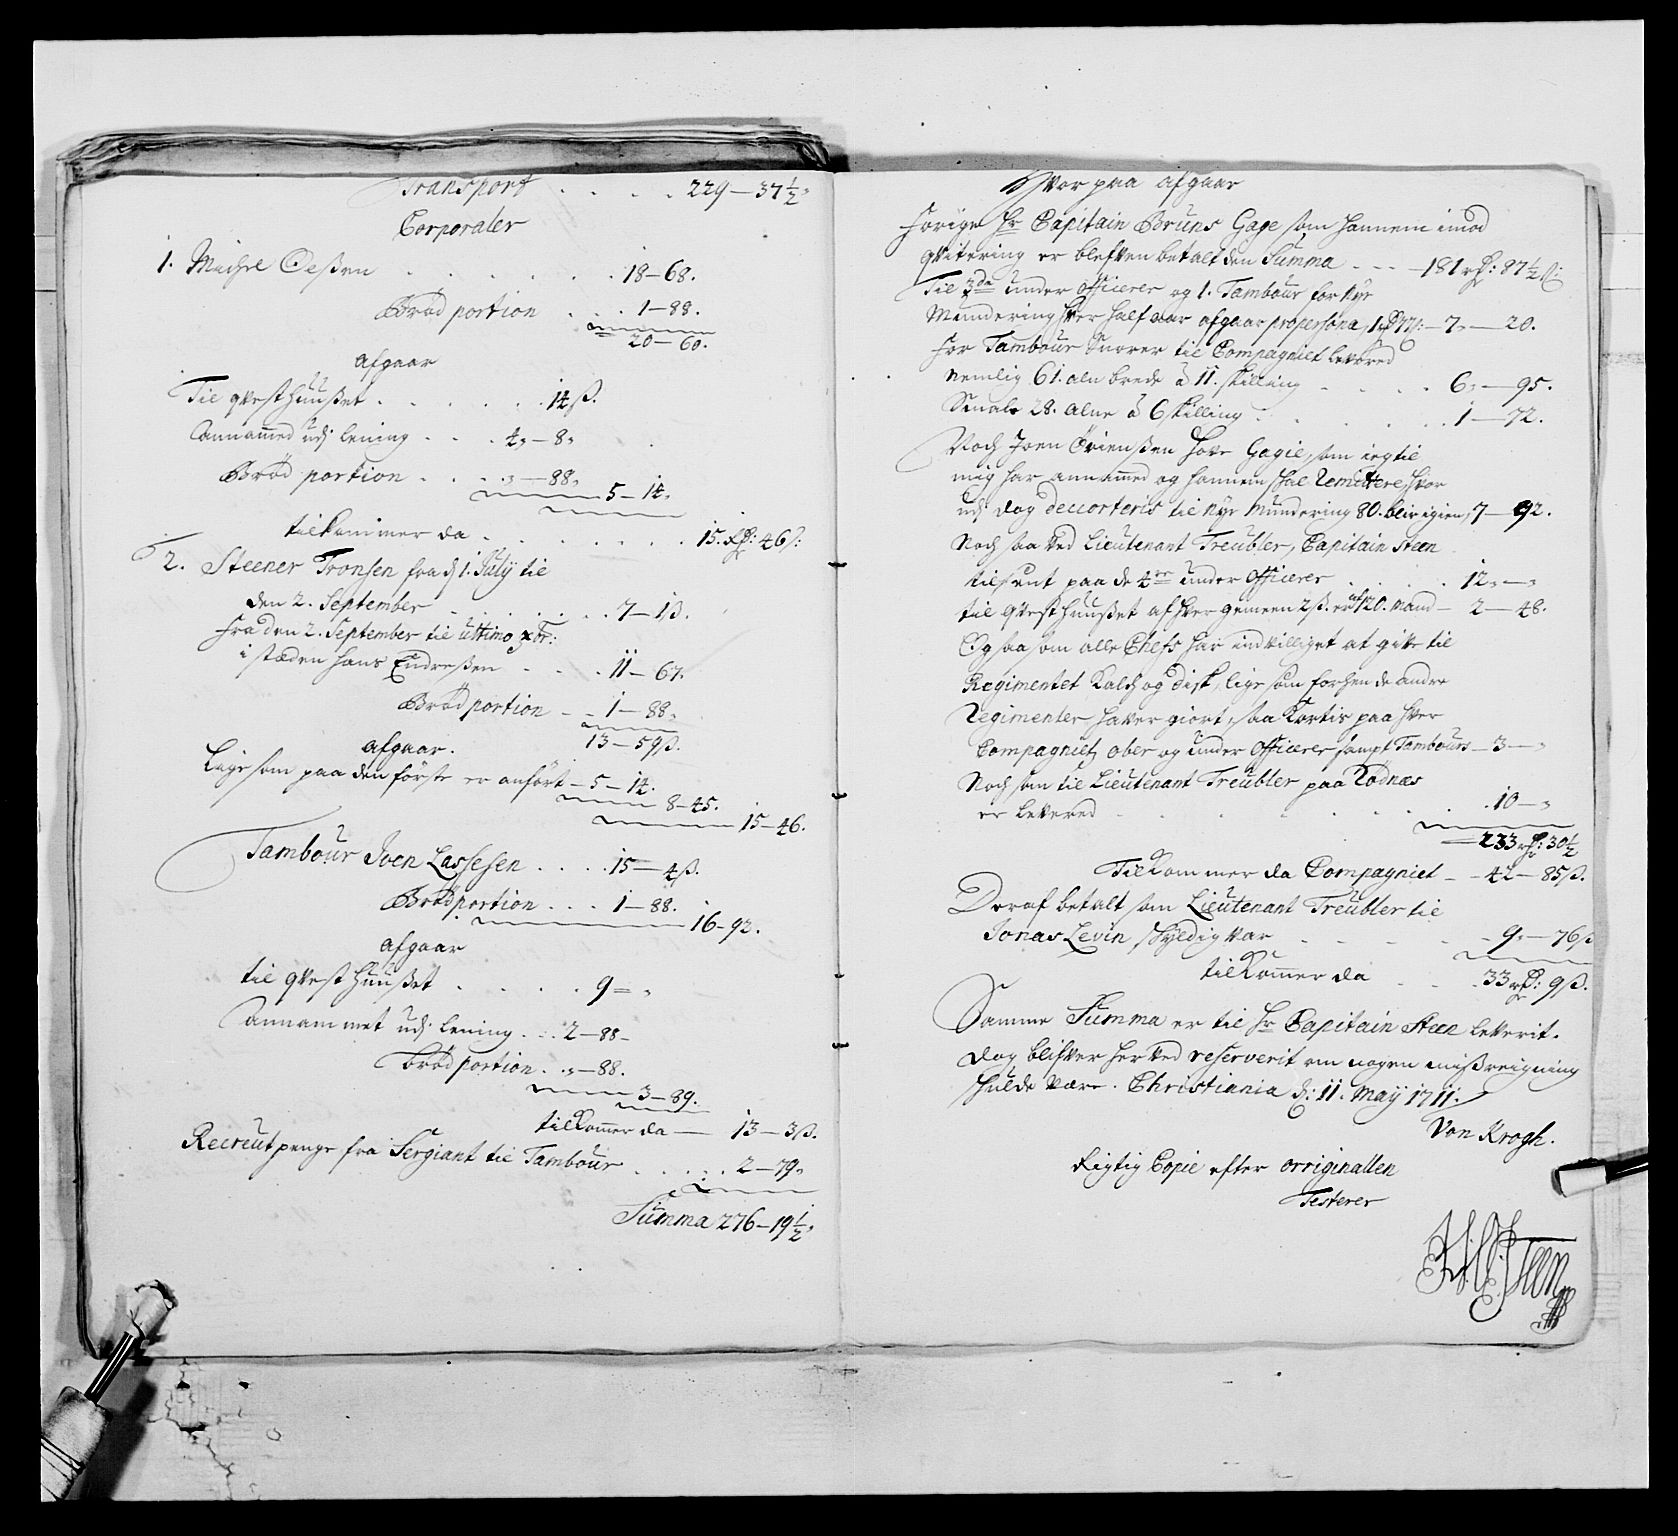 Transport . . . . 229 — 37½
Corporaler
1. Michel Oeßen . . . . . . 18 — 68.
Brød portion . . . 1 — 88.
20 — 60.
afgaar
Til qvesthuußet . . . . . . 14 ß.
Annammed udj lening . . . 4 — 8
Brød portion . . . — 88
5 — 14
tilkommer da . . . . . . . 15 Rdr: 46 ß:
2. Steener Tronsen fra d: 1. July til
den 2. September . . . . . . . 7 — 1 ß.
fra den 2. September til ultimo xbr:
i stæden Hans Endreßen . . . . 11 — 67.
Brød portion — 1 — 88
13 — 59 ß.
afgaar.
Lige som paa den første er anført — 5 — 14.
8 — 45.
15 — 46.
Tambour Joen Lassesen . . . . 15 — 4 ß.
Brød portion . . . 1 — 88.
16 — 92.
afgaar
til qvesthuußet . . . . . 9 =
Annammet udj lening . . . 2 — 88 —
brød portion . — 88.
3 — 89.
tilkommer da — 13 — 3 ß.
Recreut penge fra Sergiant til Tambour . . . . . 2 — 79
Summa 276 — 19½
Hvor paa afgaar
forrige Hr Capitain Bruns Gage som hannem imod
qvitering er blefven betalt den Summa . . . — 181 rdr: 87½ ß:
Til 3de under officerer og 1. Tambour for Nye
Mundering hver half aar afgaar pro persona, 1 — 7 — 20.
for Tambour Snorer til Compagniet leveret
nemlig 61. aln brede á 11. skilling . . . . 6 — 95.
Smale 28. alne á 6 skilling . . . . . . 1 — 72.
Noch Joen hans Gagie, som ieg til
mig har annammed og hannem skal Remittere, hvor
udj dog decorteris til Nye Mundering 80. blir igien, 7 — 92.
Noch saa ved Lieutenant Treubler, Capitain Steen
tilsent paa de 4re under officerer . . . . 12 —
til qvesthuußet af hver gemeen 2 ß. er af 120. mand — 2 — 48.
Og saasom alle Chefs har indvilliget at give til
Regimentet Kalch og disk, lige som forhen de andre
Regimenter hafver giort, saa Kortis paa hver
Compagniets ober og under officerer sampt Tambours — 3 —
Noch som til Lieutenant Treubler paa Rødnæs
er leveret . . . . . . 10 —
233 rdr: 30½
Tilkommer da Compagniet — 42 — 85 ß.
Deraf betalt som Lieutenant Treubler til
Jonas Levin skyldig var . . . . . 9 — 76 ß
tilkommer da . . . 33 rdr: 9 ß.
Samme Summa er til Hr Capitain Steen leverit.
dog blifver herved reserverit om nogen misreigning
skulde være. Christiania d: 11. May 1711.
Von Krogh.
Rigtig Copie efter orriginallen
Testerer
Steen